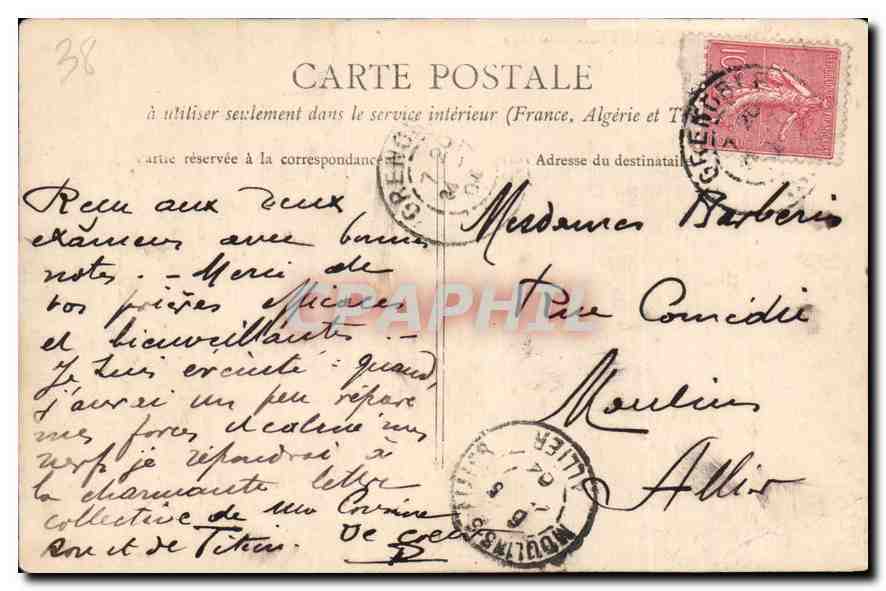 38
CARTE POSTALE
à utiliser seulement dans le service intérieur (France, Algérie et T
artie réservée à la correspondance
Adresse du destinatai
GRENOBLE
GRENO
7 20
04
10
CPAPHIL
Reçu aux deux
examens avec bonnes
notes. - Merci de
vos prières efficaces
et bienveillantes. -
Je suis éreinté : quand
j'aurai un peu réparé
mes forces et calmé mes
nerfs je répondrai à
la charmante lettre
collective de ma Cousine
et de Titin. De coeur
Mesdames Barberin
Rue Comédie
Moulins
Allier
MOULINS-S-ALLIER
ALLIER
04